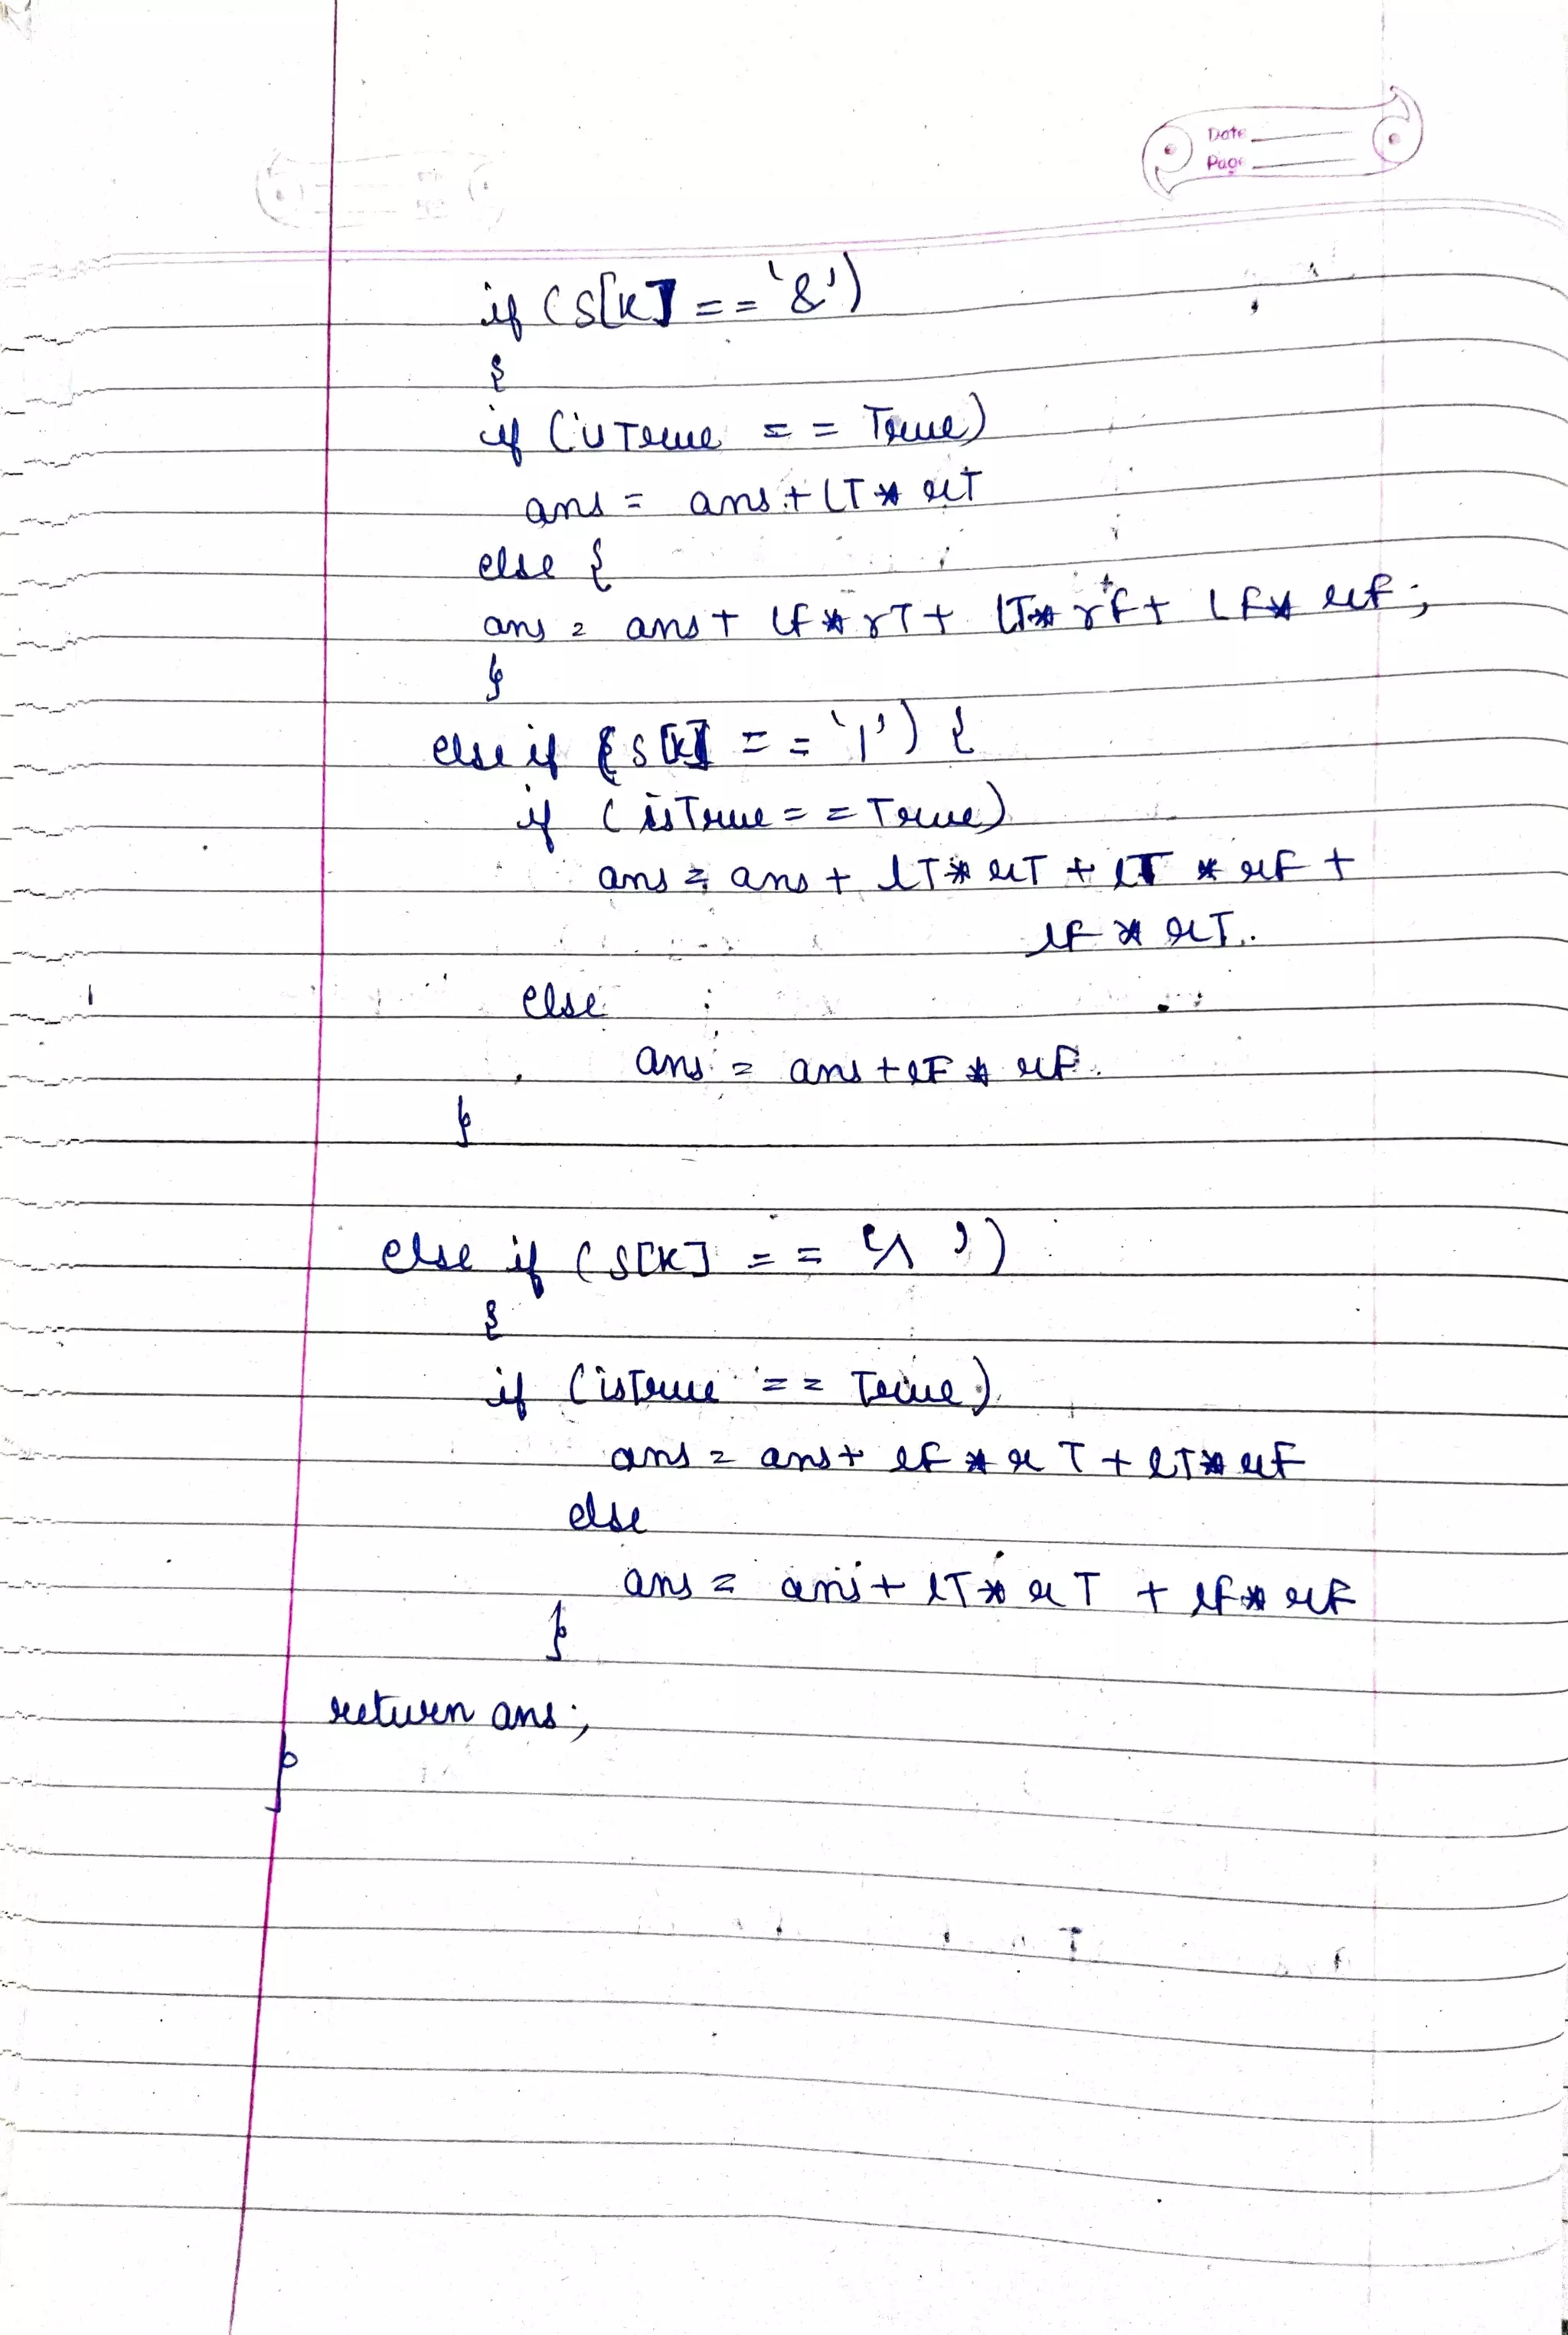 Date
Page
if (S[K] == '&')
{
if (isTrue == True)
ans = ans + lT * rT
else {
ans = ans + lF * rT + lT * rF + lF * rF;
}
else if (S[K] == '|') {
if (isTrue == True)
ans = ans + lT * rT + lT * rF +
lF * rT.
else
ans = ans + lF * rF.
}
else if (S[K] == '^')
{
if (isTrue == True)
ans = ans + lF * rT + lT * rF
else
ans = ans + lT * rT + lF * rF
}
return ans;
}